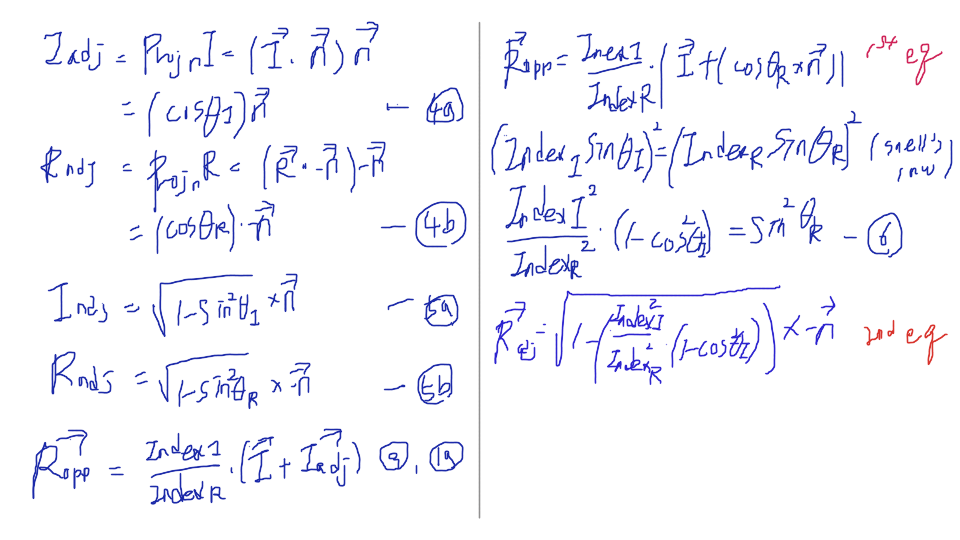 I adj = Proj n I = (I⃗ · n⃗) n⃗
= (cosθI) n⃗ — 4a
Radj = proj n R = (R⃗ · -n⃗) -n⃗
= (cosθR) · -n⃗ — 4b
Iadj = √(1-sin²θI) × n⃗ — 5a
Radj = √(1-sin²θR) × -n⃗ — 5b
R⃗opp = IndexI/IndexR · (I⃗ + I⃗adj) a, 1a
R⃗opp = InexI/IndexR · (I⃗ + (cosθR × n⃗)) 1st eq
(IndexI sinθI)² = (IndexR sinθR)² (snell's law)
IndexI²/IndexR² · (1-cos²θI) = sin²θR — 6
R⃗adj = √(1-(IndexI²/IndexR² (1-cos²θI))) × -n⃗ 2nd eq